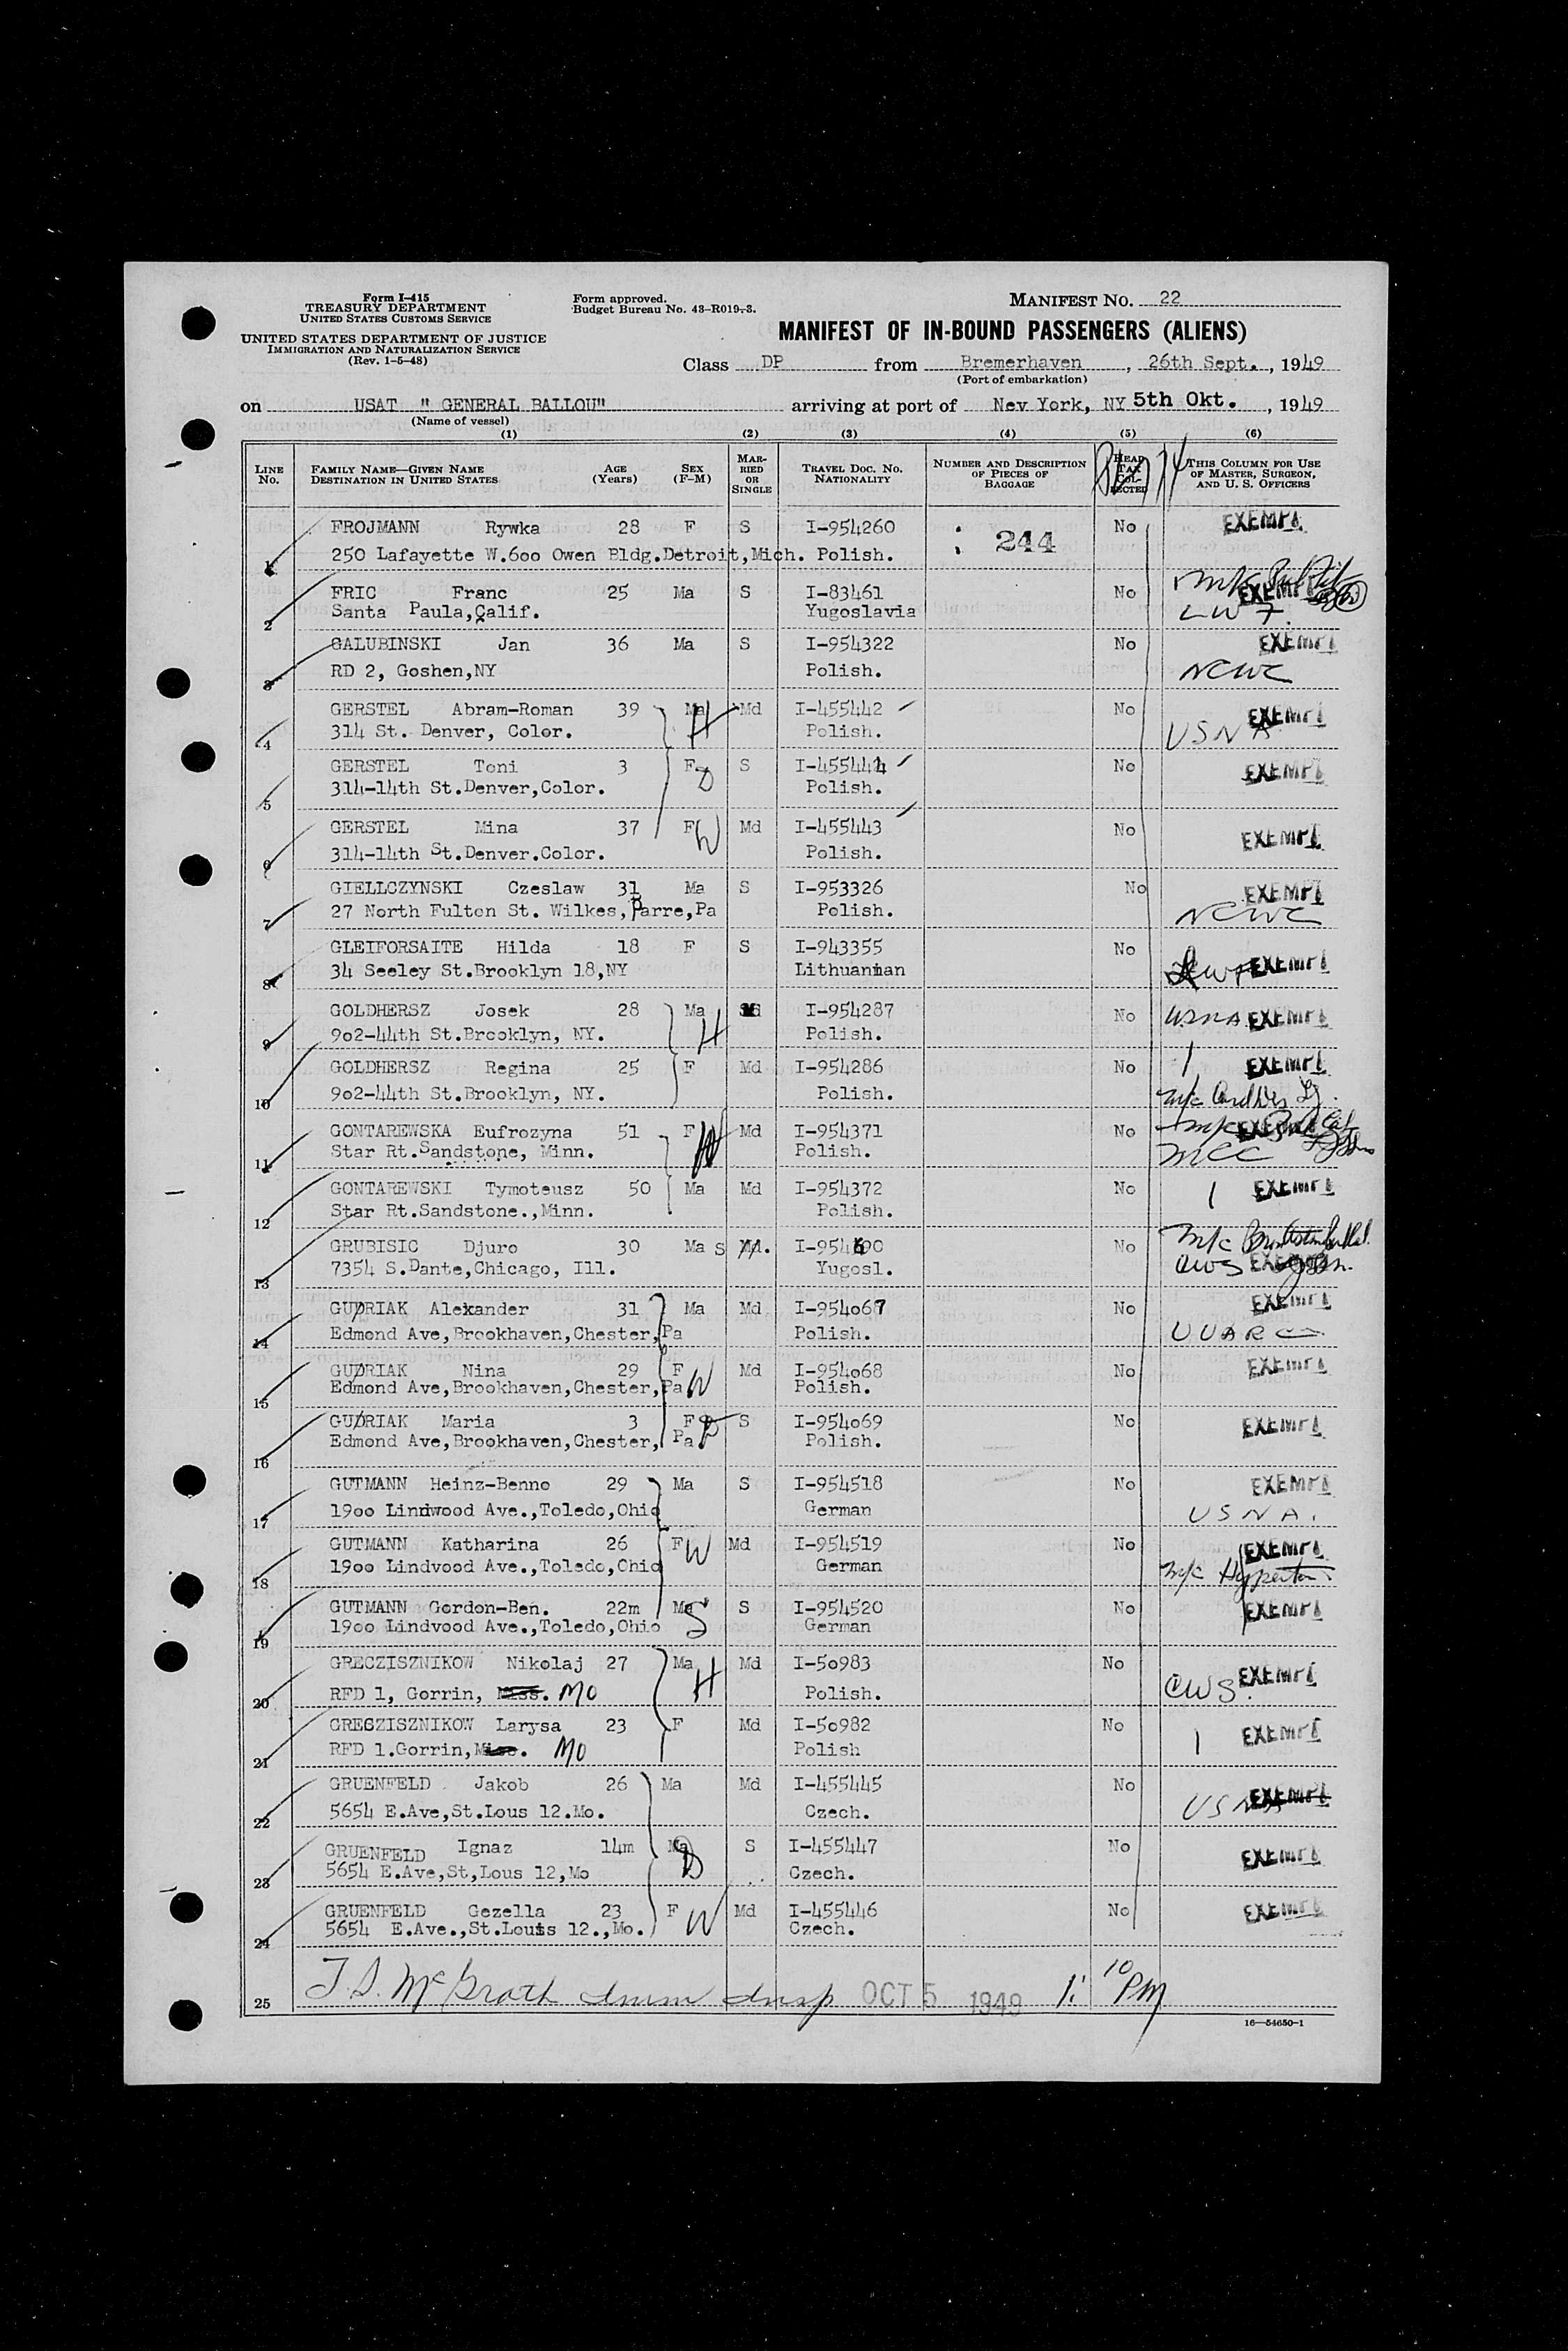 Form I-415
TREASURY DEPARTMENT
UNITED STATES CUSTOMS SERVICE
UNITED STATES DEPARTMENT OF JUSTICE
IMMIGRATION AND NATURALIZATION SERVICE
(Rev. 1-5-48)
Form approved.
Budget Bureau No. 43-R019-3.
MANIFEST NO. 22
MANIFEST OF IN-BOUND PASSENGERS (ALIENS)
Class DP from Bremerhaven, 26th Sept., 1949
(Port of embarkation)
on USAT " GENERAL BALLOU" arriving at port of New York, NY 5th Okt., 1949
(Name of vessel)
(1) (2) (3) (4) (5) (6)
LINE No. FAMILY NAME—GIVEN NAME DESTINATION IN UNITED STATES AGE (Years) SEX (F-M) MARRIED OR SINGLE TRAVEL DOC. NO. NATIONALITY NUMBER AND DESCRIPTION OF PIECES OF BAGGAGE HEAD TAX COLLECTED THIS COLUMN FOR USE OF MASTER, SURGEON, AND U. S. OFFICERS
1 FROJMANN Rywka 28 F S I-954260 244 No EXEMPT
250 Lafayette W.600 Owen Bldg.Detroit,Mich. Polish.
2 FRIC Franc 25 Ma S I-83461 No EXEMPT
Santa Paula,Calif. Yugoslavia LWF
3 GALUBINSKI Jan 36 Ma S I-954322 No EXEMPT
RD 2, Goshen,NY Polish. NCWC
4 GERSTEL Abram-Roman 39 Ma H Md I-455442 No EXEMPT
314 St. Denver, Color. Polish. USNA
5 GERSTEL Toni 3 F D S I-455444 No EXEMPT
314-14th St.Denver,Color. Polish.
6 GERSTEL Mina 37 F W Md I-455443 No EXEMPT
314-14th St.Denver.Color. Polish.
7 GIELLCZYNSKI Czeslaw 31 Ma S I-953326 No EXEMPT
27 North Fulton St. Wilkes,Barre,Pa Polish. NCWC
8 GLEIFORSAITE Hilda 18 F S I-943355 No EXEMPT
34 Seeley St.Brooklyn 18,NY Lithuanian LWF
9 GOLDHERSZ Josek 28 Ma H I-954287 No USNA EXEMPT
902-44th St.Brooklyn, NY. Polish.
10 GOLDHERSZ Regina 25 F Md I-954286 No EXEMPT
902-44th St.Brooklyn, NY. Polish.
11 GONTAREWSKA Eufrozyna 51 F W Md I-954371 No EXEMPT
Star Rt.Sandstone, Minn. Polish. MCC
12 GONTAREWSKI Tymoteusz 50 Ma Md I-954372 No EXEMPT
Star Rt.Sandstone.,Minn. Polish.
13 GRUBISIC Djuro 30 Ma S Md. No
7354 S.Dante,Chicago, Ill. Yugosl. CWS EXEMPT
14 GUDRIAK Alexander 31 Ma Md I-954067 No EXEMPT
Edmond Ave,Brookhaven,Chester,Pa Polish. UUARC
15 GUDRIAK Nina 29 F W Md I-954068 No EXEMPT
Edmond Ave,Brookhaven,Chester,Pa Polish.
16 GUDRIAK Maria 3 F D S I-954069 No EXEMPT
Edmond Ave,Brookhaven,Chester, Pa. Polish.
17 GUTMANN Heinz-Benno 29 Ma S I-954518 No EXEMPT
1900 Lindwood Ave.,Toledo,Ohio German USNA.
18 GUTMANN Katharina 26 F W Md I-954519 No EXEMPT
1900 Lindvood Ave.,Toledo,Ohio German m/c Hypertension
19 GUTMANN Gordon-Ben. 22m Ma S S I-954520 No EXEMPT
1900 Lindvood Ave.,Toledo,Ohio German
20 GRECZISZNIKOW Nikolaj 27 Ma H Md I-50983 No EXEMPT
RFD 1, Gorrin, Miss. MO Polish. CWS.
21 GRECZISZNIKOW Larysa 23 F Md I-50982 No EXEMPT
RFD 1.Gorrin, MO Polish
22 GRUENFELD Jakob 26 Ma Md I-455445 No EXEMPT
5654 E.Ave,St.Lous 12.Mo. Czech. USNA
23 GRUENFELD Ignaz 14m Ma D S I-455447 No EXEMPT
5654 E.Ave,St,Lous 12,Mo Czech.
24 GRUENFELD Gezella 23 F W Md I-455446 No EXEMPT
5654 E.Ave.,St.Louis 12.,Mo. Czech.
25 T.S. McGrath Imm Insp OCT 5 1949 1:10 PM
16—54650-1